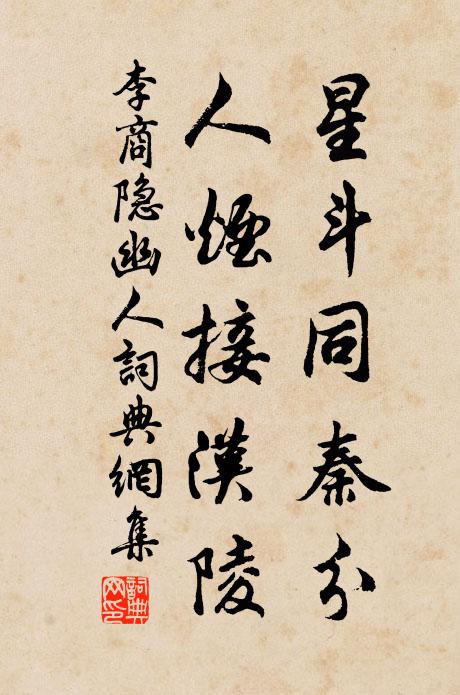 星斗同秦分
人煙接漢陵
李商隐幽人詞典網集
詞典網印